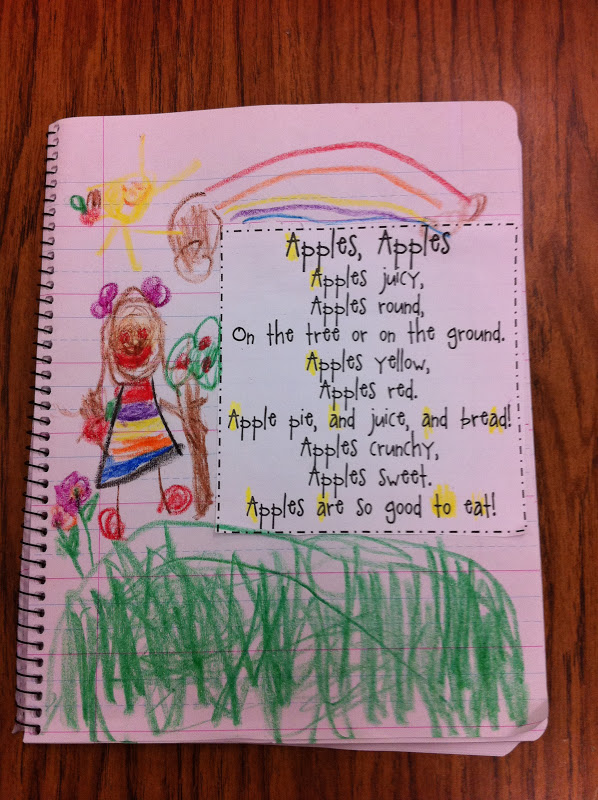 Apples, Apples
Apples juicy,
Apples round,
On the tree or on the ground.
Apples yellow,
Apples red.
Apple pie, and juice, and bread!
Apples crunchy,
Apples sweet.
Apples are so good to eat!